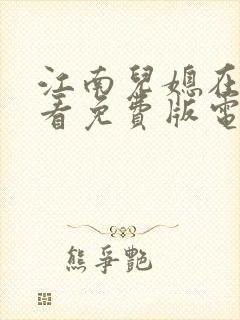 江南兒媳在
看免費版電
熊爭艷